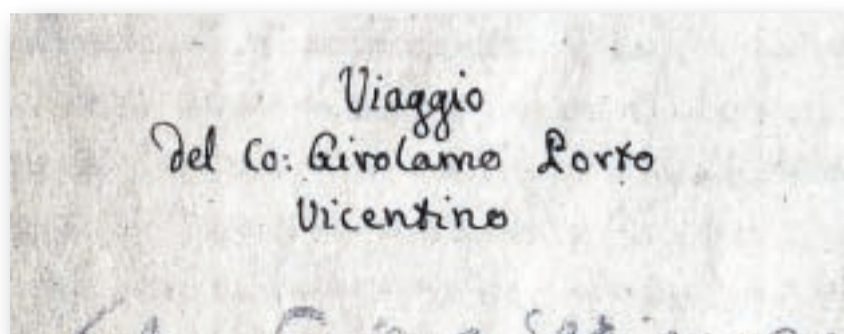 Viaggio
del Co: Girolamo Porto
Vicentino